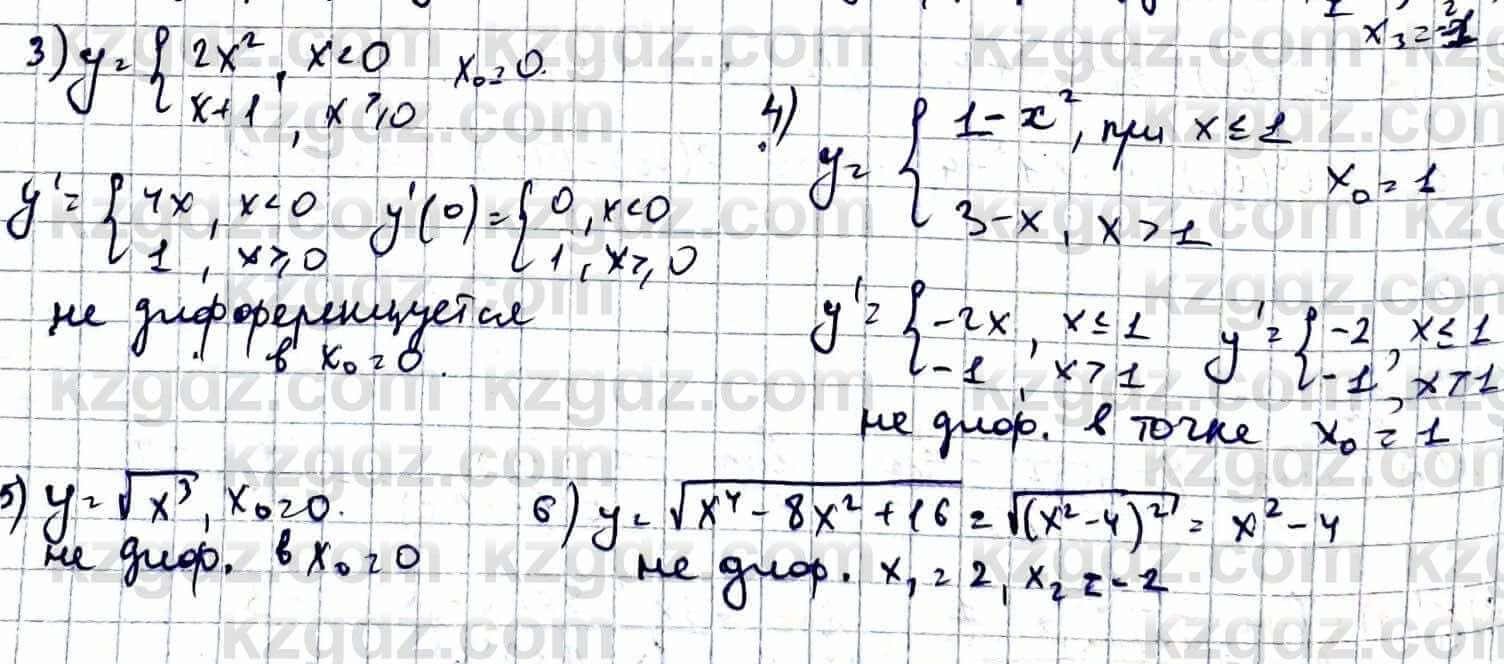 x₃ = -1
3) y = { 2x², x<0   x₀ = 0.
x+1, x⩾0
y' = { 4x, x<0   y'(0) = { 0, x<0
1, x⩾0   1, x⩾0
не дифференцуется
в x₀ = 0.
4) y = { 1-x², при x≤1
x₀ = 1
3-x, x>1
y' = { -2x, x≤1   y' = { -2, x≤1
-1, x>1   -1, x>1
не диф. в точке x₀ = 1
5) y = √x³, x₀ = 0.
не диф. в x₀ = 0
6) y = √x⁴ - 8x² + 16 = √(x²-4)² = x² - 4
не диф. x₁ = 2, x₂ = -2
kzgdz.com